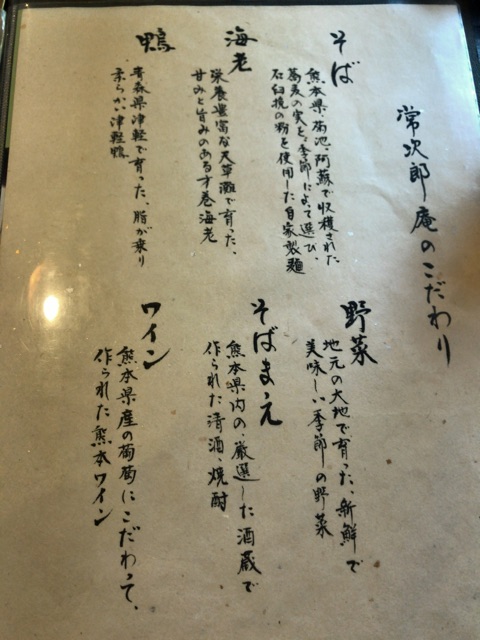 常次郎庵のこだわり
そば
熊本県菊池、阿蘇で収穫された
蕎麦の実を、季節によって選び、
石臼挽の粉を使用した自家製麺
海老
栄養豊富な天草灘で育った、
甘みと旨みのある才巻海老
鴨
青森県津軽で育った、脂が乗り
柔らかい津軽鴨
野菜
地元の大地で育った、新鮮で
美味しい季節の野菜
そばまえ
熊本県内の、厳選した酒蔵で
作られた清酒、焼酎
ワイン
熊本県産の葡萄にこだわって、
作られた熊本ワイン